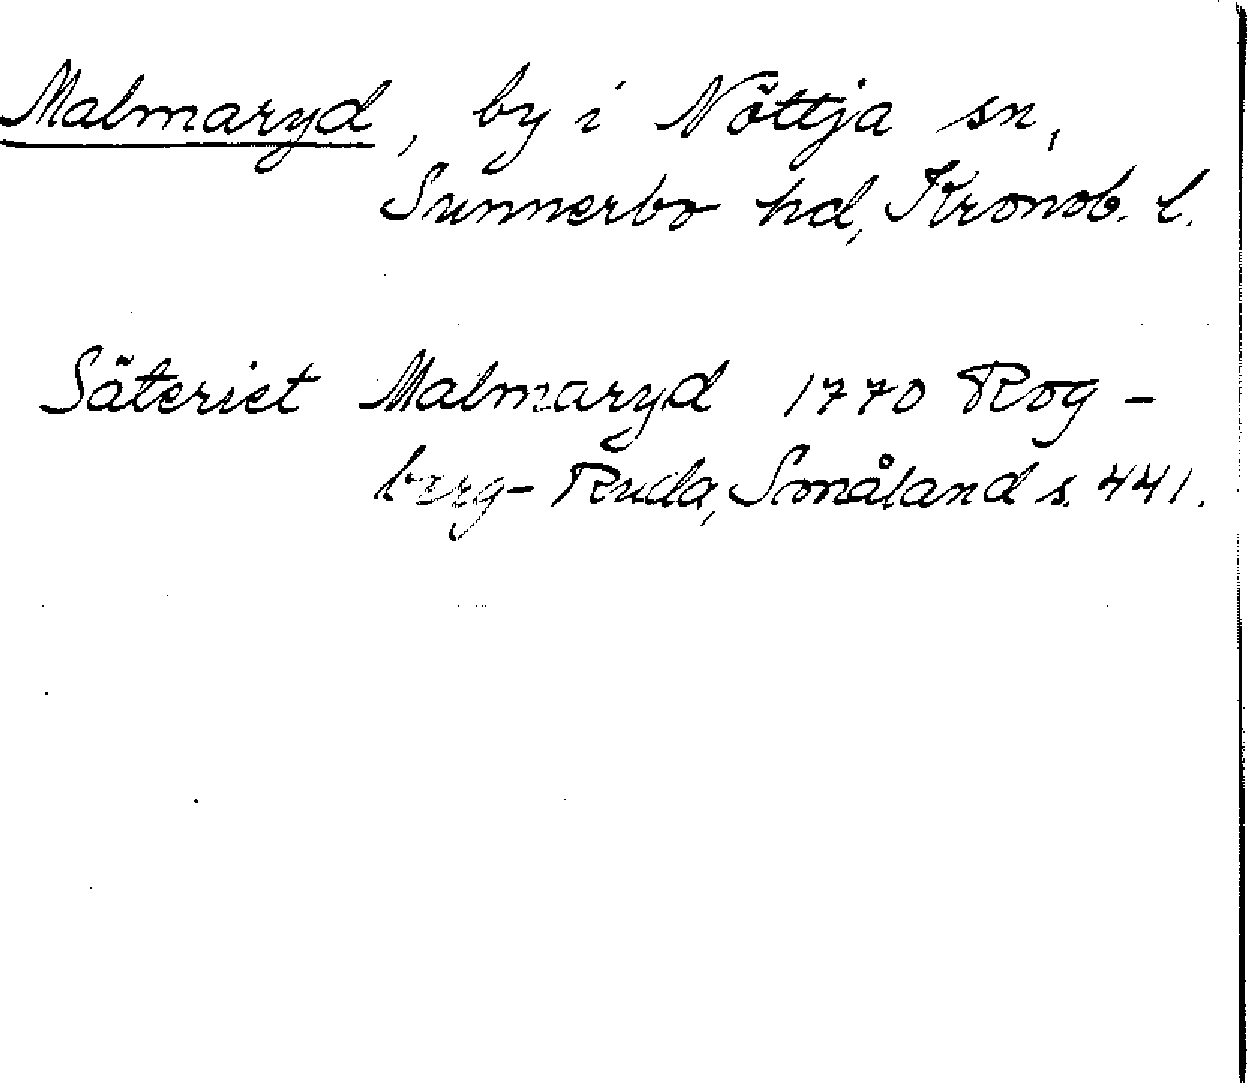 Malmaryd, by i Nöttja sn,
Sunnerbo hd, Kronob. l.
Säteriet Malmaryd 1770 Rog-
berg-Ruda, Småland s. 441.